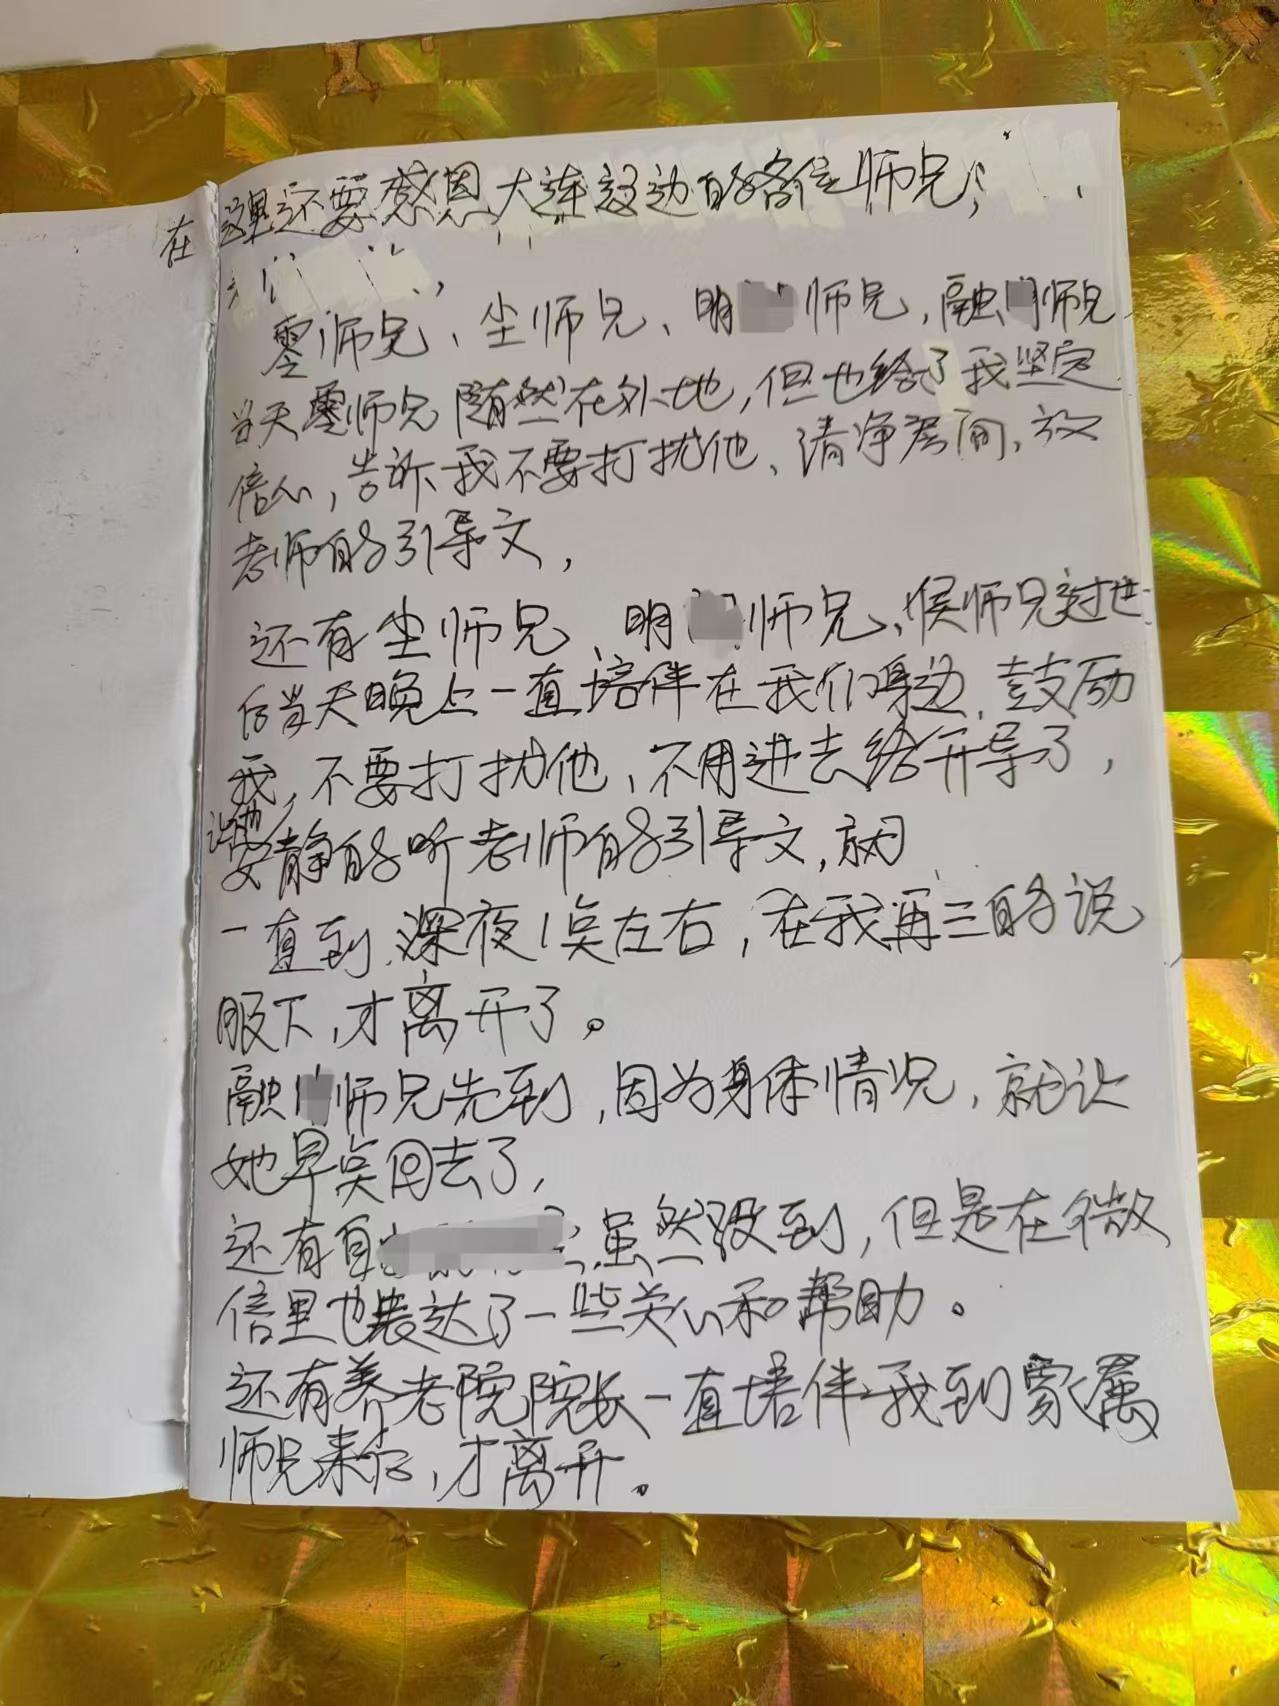 在这里还要感恩大连这边的各位师兄；
零师兄、尘师兄、明 师兄，融 师兄
当天零师兄随然在外地，但也给了我坚定
信心，告诉我不要打扰他、清净房间，放
老师的引导文，
还有尘师兄、明 师兄、侯师兄过世
后当天晚上一直培伴在我们身边，鼓励
我，不要打扰他，不用进去给开导了，
让他安静的听老师的引导文，就
一直到深夜1点左右，在我再三的说
服下，才离开了。
融 师兄先到，因为身体情况，就让
她早点回去了，
还有自 虽然没到，但是在微
信里也表达了一些关心和帮助。
还有养老院院长一直培伴我到家属
师兄来后，才离开。